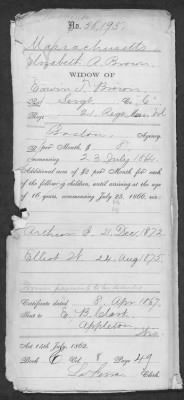 No. 56,195
Massachusetts
Elizabeth A. Brown
WIDOW OF
Edwin T. Brown
Serg't Co. "C"
Reg't 21. Regt. Mass. Vol
Boston Agency.
per Month $ 8
commencing 23 July 1864.
Additional sum of $2 per Month for each
of the following children, until arriving at the age
of 16 years, commencing July 25, 1866, viz:
Arthur 21. Dec. 1872.
Elliot W. 24. Aug 1875.
Certificate dated 8. Apr. 1867.
Sent to E. B. Clark
Appleton
Wis
Act 14th July, 1862.
Book Vol. 8 Page 49
Clerk.